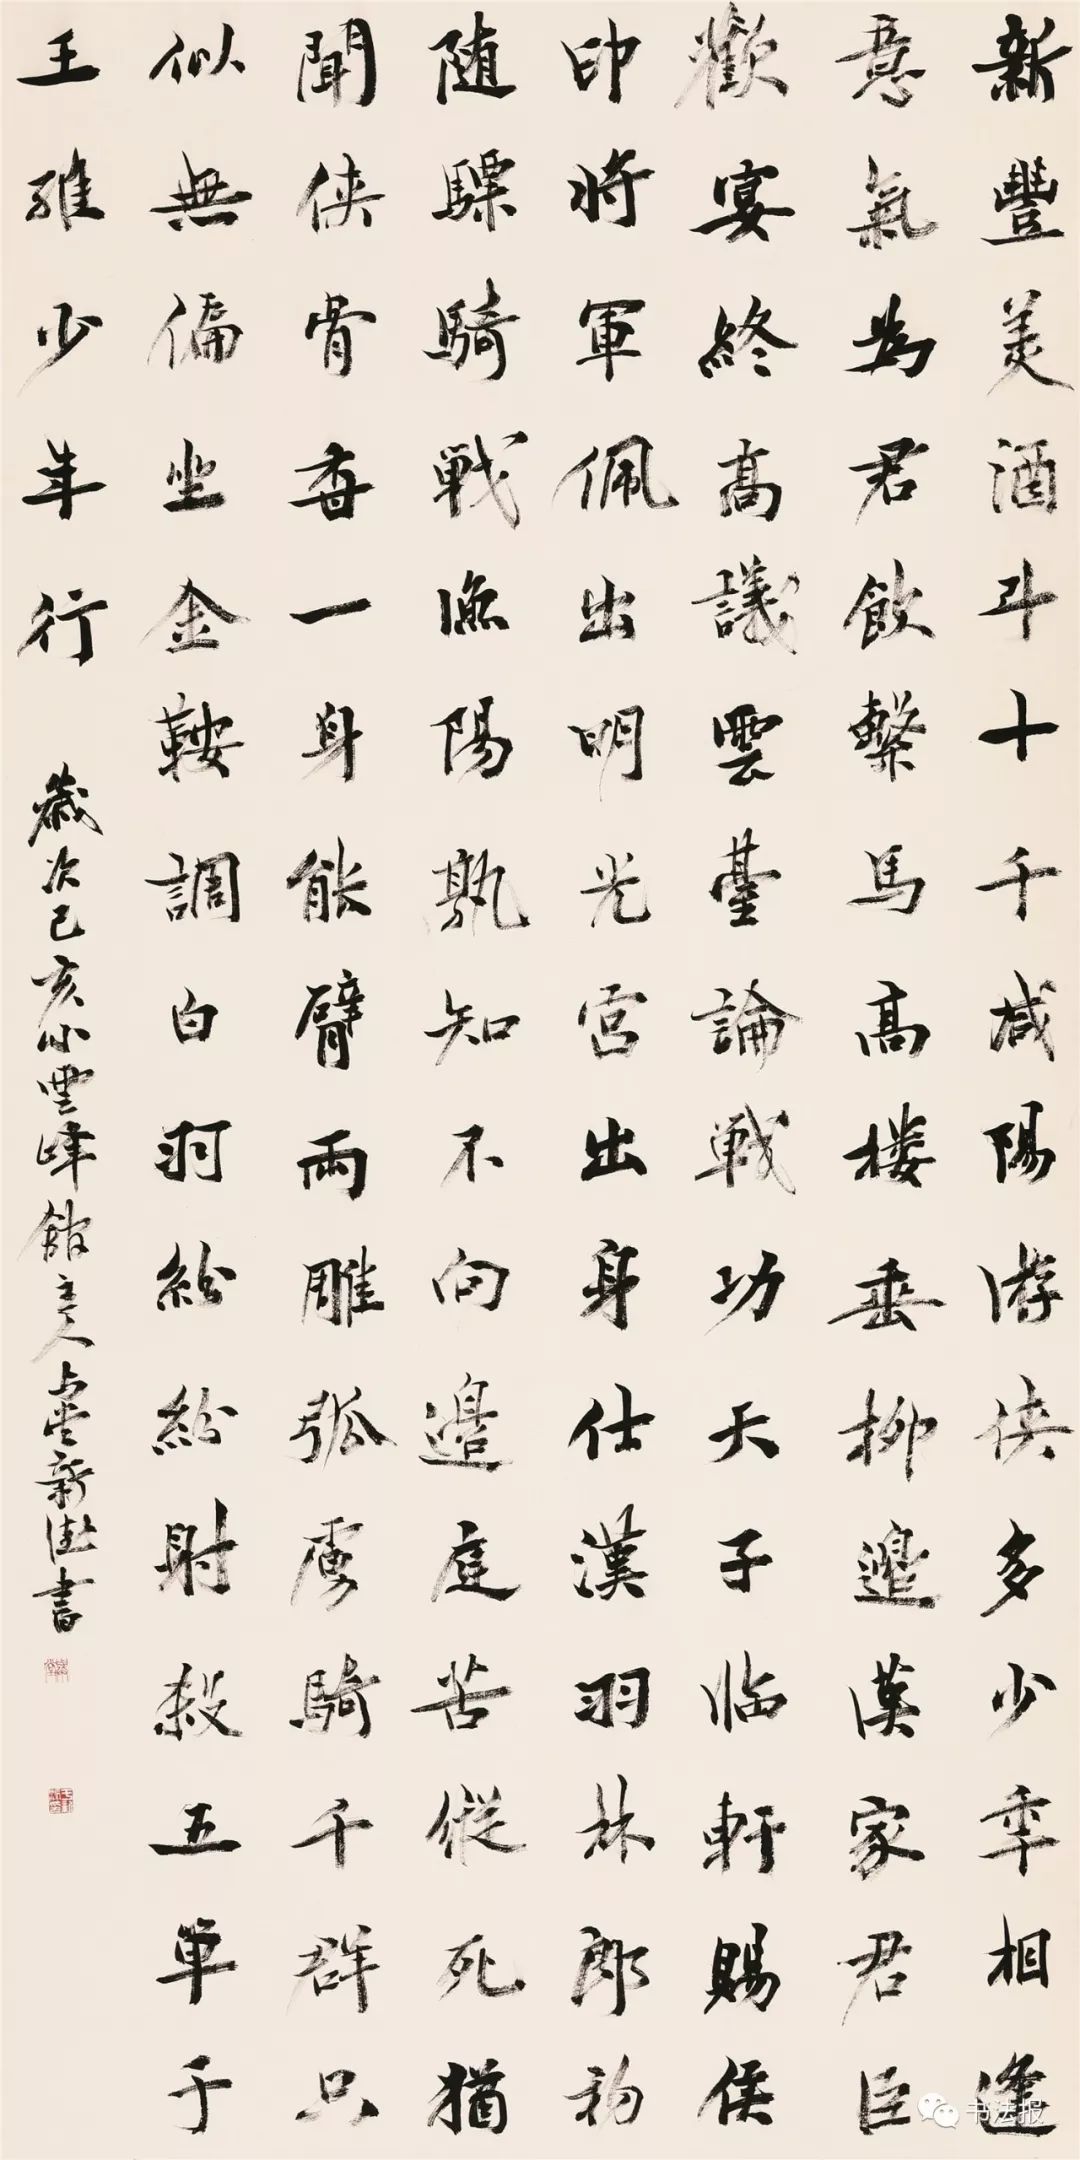 新豐美酒斗十千咸陽游俠多少年相逢
意氣為君飲繫馬高楼垂柳邊漢家君臣
歡宴終高議雲臺論戰功天子临軒賜侯
印將軍佩出明光宫出身仕漢羽林郎初
随驃騎戰漁陽孰知不向邊庭苦縱死猶
聞俠骨香一身能臂兩雕弧虜騎千群只
似無偏坐金鞍調白羽紛紛射殺五單于
王維少年行
歲次己亥小雲峰館主人盧新德書
书法报